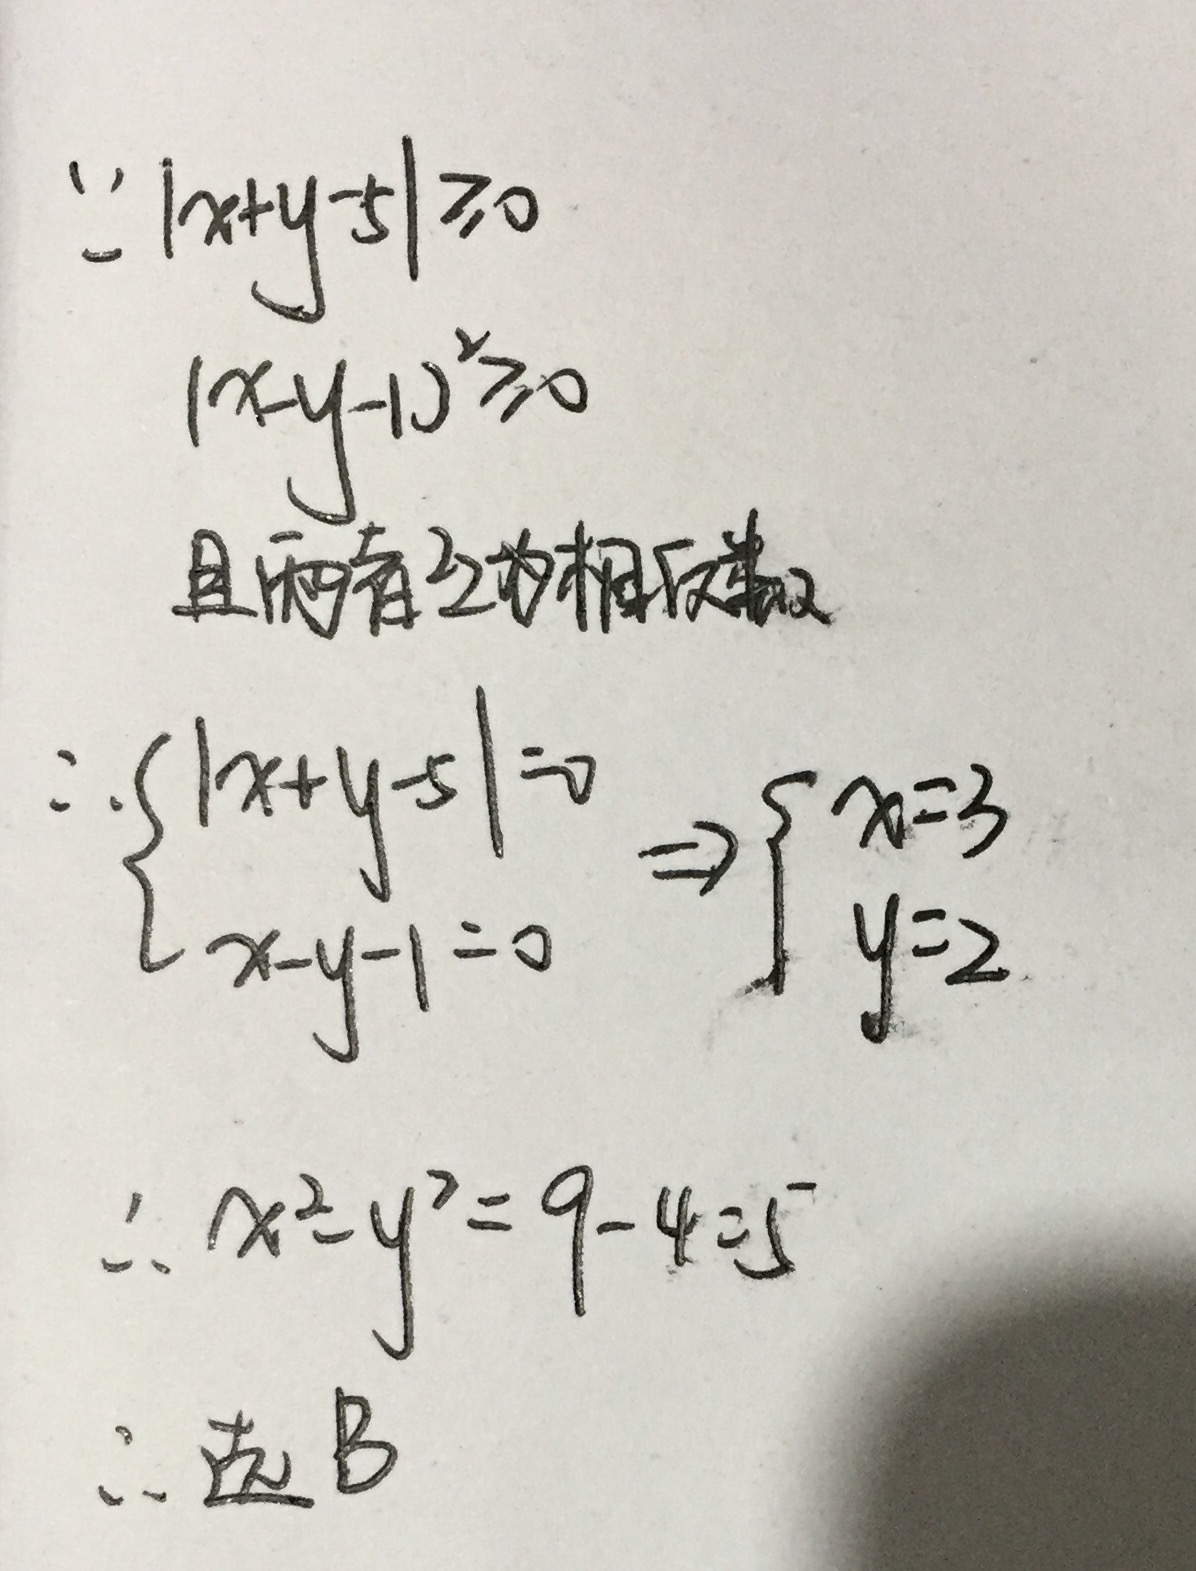 ∵ |x+y-5|≥0
(x-y-1)²≥0
且两者互为相反数
∴ { |x+y-5|=0 ⇒ { x=3
x-y-1=0 y=2
∴ x²-y²=9-4=5
∴ 选B